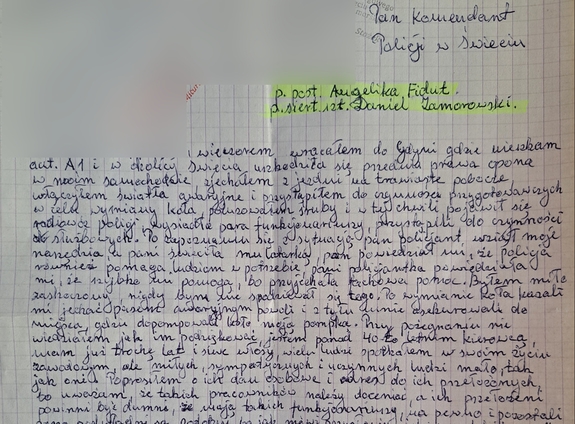 Pan Komendant
Policji w Świeciu
p. post. Angelika Fidut.
p. sierż. szt. Daniel Zamorowski.
wieczorem wracałem do Gdyni gdzie mieszkam
aut. A1 i w okolicy Świecia uszkodziła się przednia prawa opona
w moim samochodzie zjechałem z jezdni na trawiaste pobocze
włączyłem światła awaryjne i przystąpiłem do czynności przygotowawczych
w celu wymiany koła poluzowałem śruby i w tej chwili pojawił się
radiowóz policji wysiadła para funkcjonariuszy, przystąpili do czynności
służbowych. Po zapoznaniu się z sytuacją pan policjant wziął moje
narzędzia a pani świeciła mu latarką, pan powiedział mi, że policja
również pomaga ludziom w potrzebie, pani policjantka powiedziała
mi, że szybko mi pomogą, bo przyjechała fachowa pomoc. Byłem mile
zaskoczony, nigdy bym nie spodziewał się tego. Po wymianie koła kazali
mi jechać pasem awaryjnym powoli i z tyłu mnie asekurowali do
miejsca, gdzie dopompowali koło moją pompką. Przy pożegnaniu nie
wiedziałem jak im podziękować, jestem ponad 40-to letnim kierowcą,
mam już trochę lat i siwe włosy, wielu ludzi spotkałem w swoim życiu
zawodowym, ale miłych, sympatycznych i uczynnych ludzi mało, tak
jak oni. Poprosiłem o ich dane osobowe i adres do ich przełożonych,
bo uważam, że takich pracowników należy doceniać, a ich przełożeni
powinni być dumni, że mają takich funkcjonariuszy, na pewno i pozostali